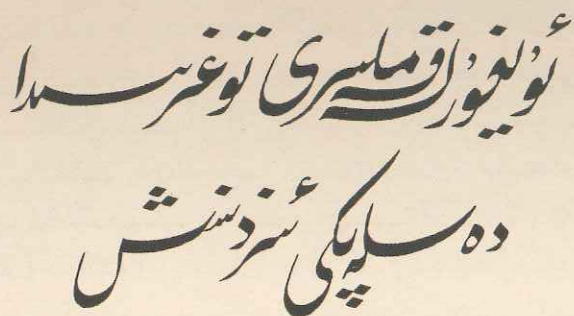 ئۇيغۇر مىللىي توغرىسىدا
دەسلەپكى ئىزدىنىش